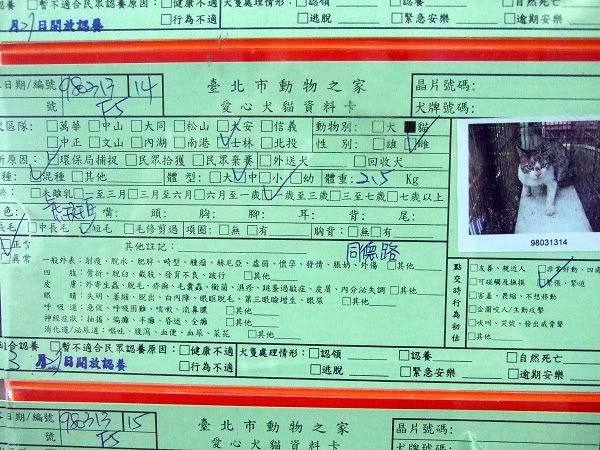 暫不適合民眾認養原因：□健康不適 犬隻處理情形：□認領 □認養 □自然死亡
月29日開放認養 □行為不適 □逃脫 □緊急安樂 □逾期安樂
日期/編號 980313 14 臺北市動物之家 晶片號碼：
號 F5 愛心犬貓資料卡 犬牌號碼：
區隊：□萬華□中山□大同□松山□大安□信義 動物別：□犬■貓
□中正□文山□內湖□南港□士林□北投 性 別：□雄□雌
原因：□環保局捕捉□民眾拾獲□民眾棄養□外送犬 □回收犬
種：□混種□其他 體型：□大□中□小□幼 體重：2.5 Kg
齡：□未離乳□一至三月□三月至六月□六月至一歲□一歲至三歲□三至七歲□七歲以上
色： 嘴： 頭： 胸： 腳： 耳： 背： 尾：
長毛□中長毛□短毛□毛修剪過 項圈：□無□有 胸背：□無□有
□正常 其他註記： 同德路
□異常 一般外表：削瘦、脫水、肥胖、畸型、腫瘤、赫尼亞、虛弱、懷孕、發情、脹奶、外傷 □其他
四 肢：骨折、脫臼、截肢、發育不良、跛行 □其他
皮 膚：外寄生蟲、脫毛、疥癬、毛囊蟲、黴菌、濕疹、跳蚤過敏症、皮屑、內分泌失調 □其他
眼 睛：失明、萎縮、脫出、白內障、眼瞼脫毛、第三眼瞼增生、眼屎 □其他
呼 吸 道：急促、呼吸困難、咳嗽、流鼻膿 □其他
神經症狀：抽搐、偏癱、半癱、昏迷、全癱 □其他
消化道/泌尿道：嘔吐、腹瀉、血便、血尿、菜花 □其他
點交時行為初估
□友善、親近人 □非常好動、四處
□可碰觸及撫摸 □緊張、緊迫
□害羞、畏縮、不想移動
□會圍咬人/主動攻擊
□吠叫、哭號、發出威脅聲
98031314
適合認養 □暫不適合民眾認養原因：□健康不適 犬隻處理情形：□認領 □認養 □自然死亡
3月29日開放認養 □行為不適 □逃脫 □緊急安樂 □逾期安樂
日期/編號 980313 15 臺北市動物之家 晶片號碼：
號 F5 愛心犬貓資料卡 犬牌號碼：